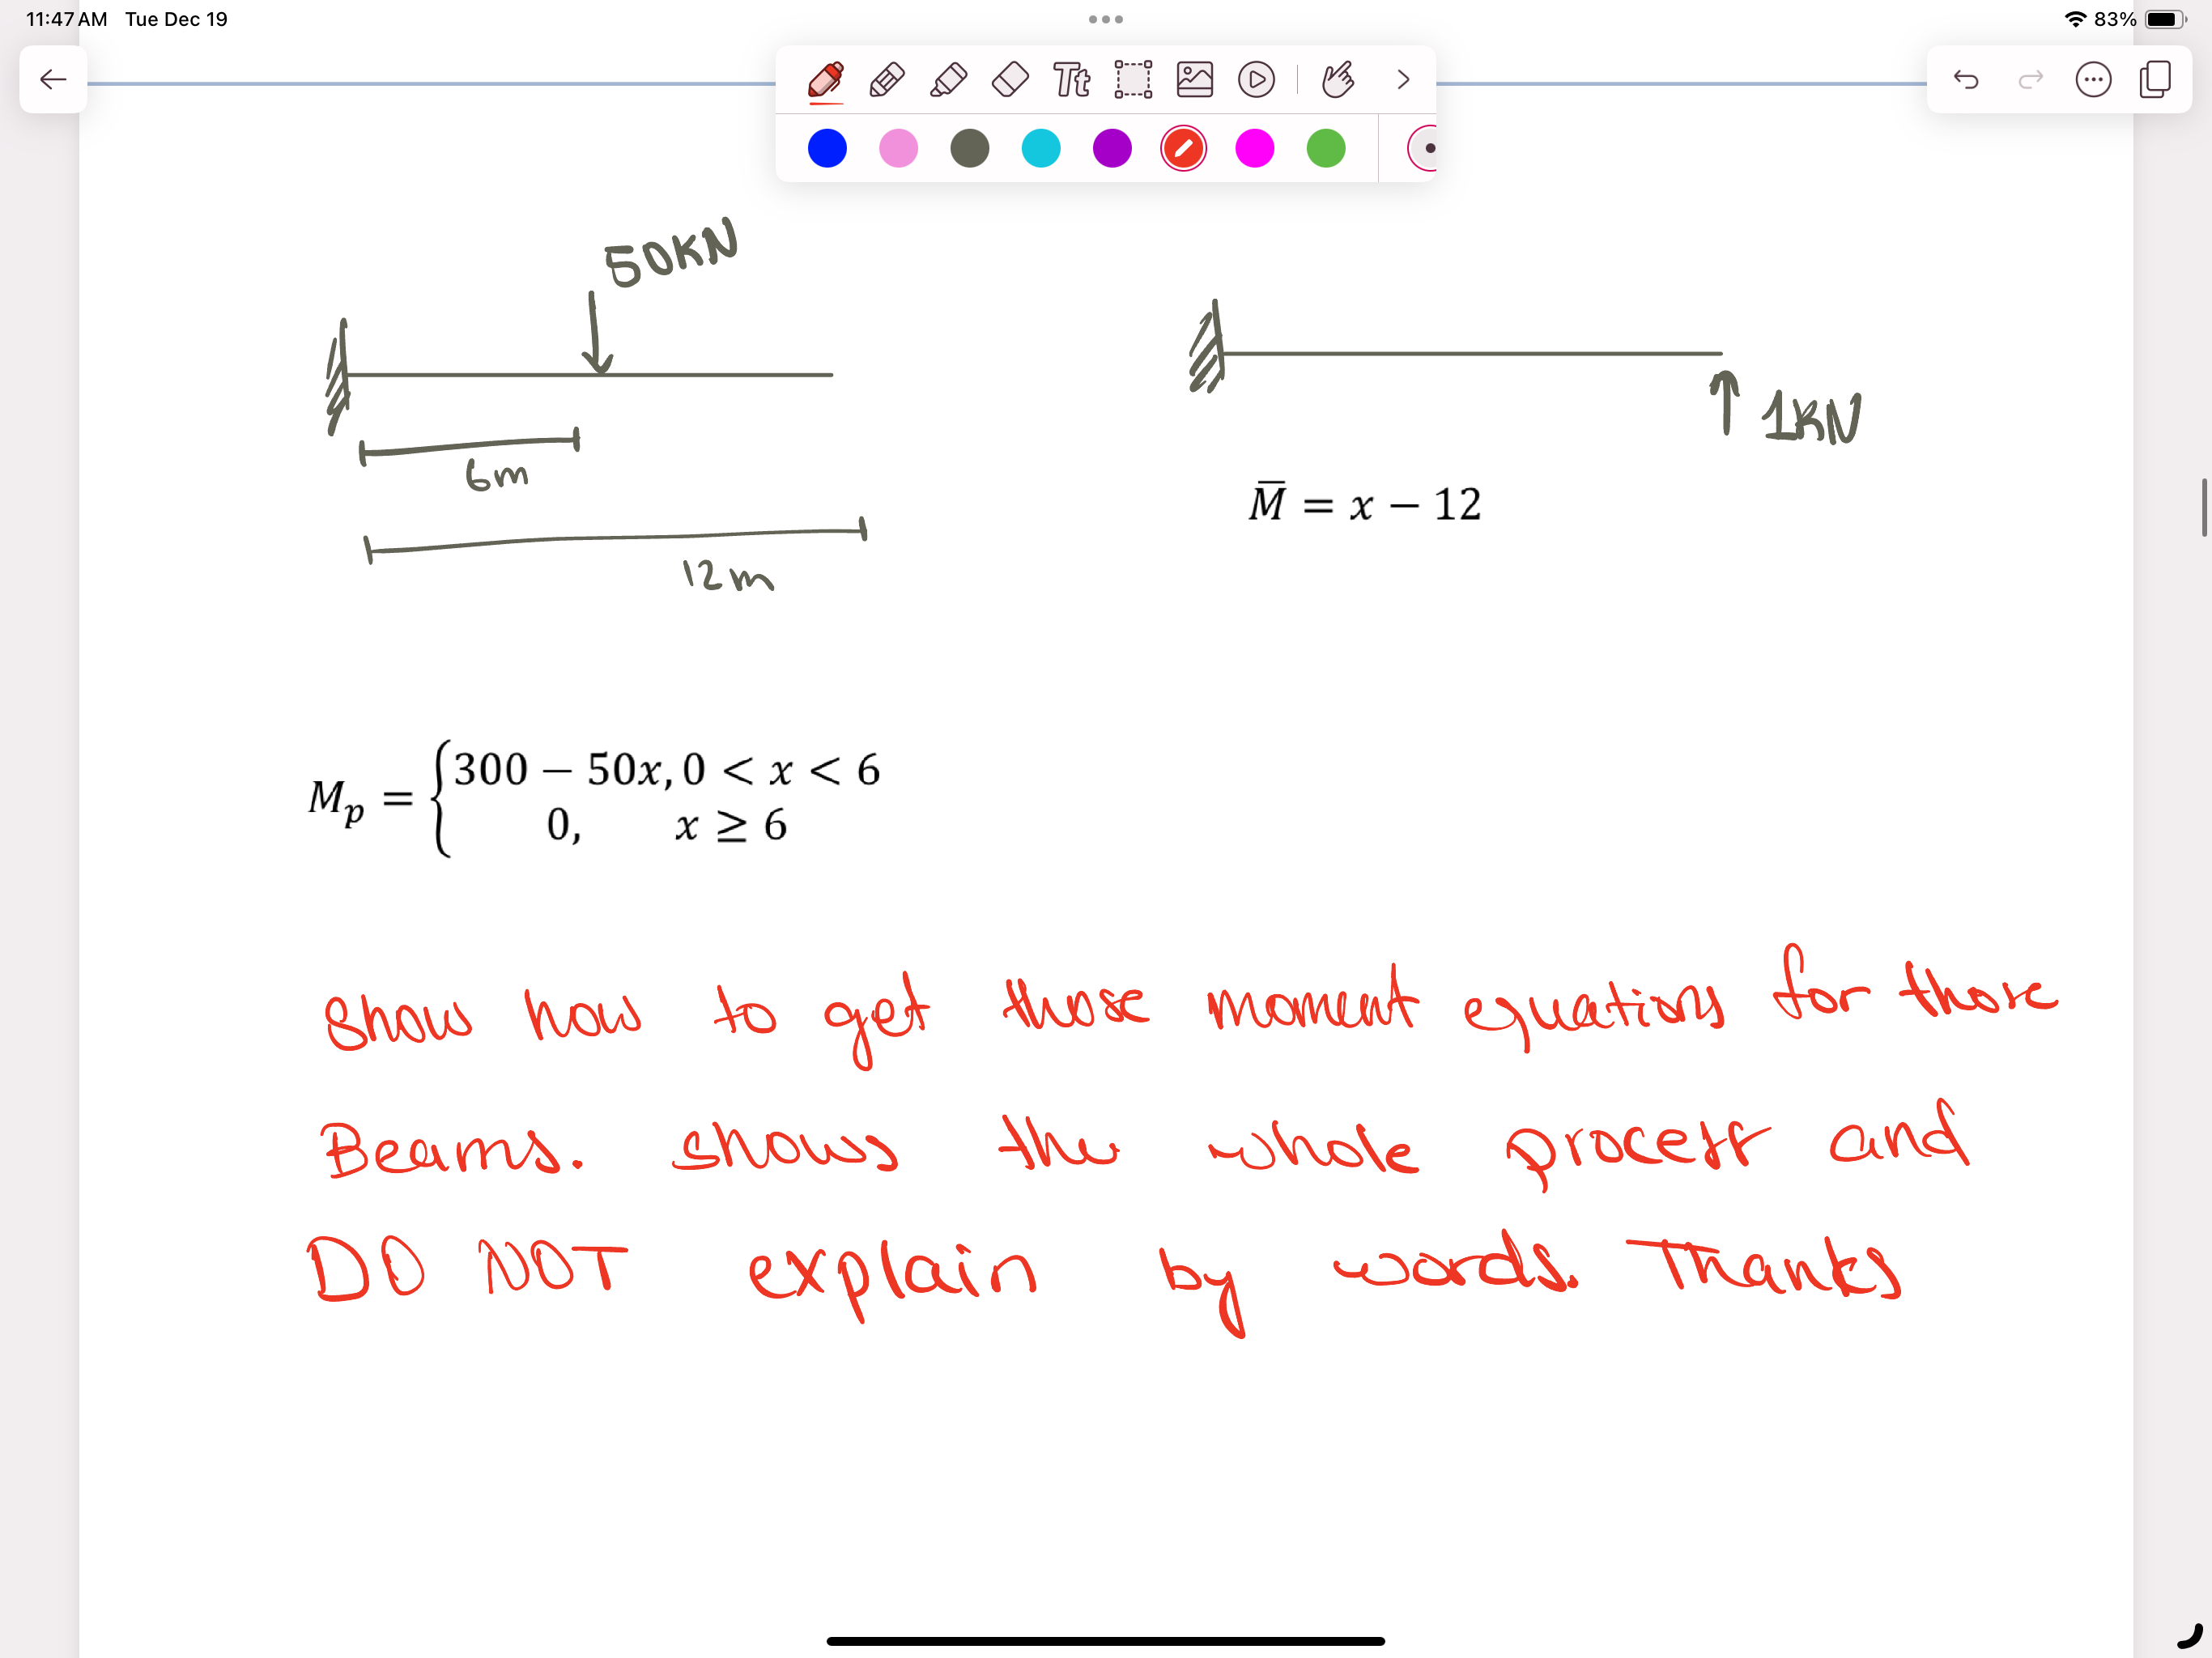 11:47 AM Tue Dec 19
83%
Tt
50KN
6m
12m
1KN
M̅ = x − 12
Mp = { 300 − 50x, 0 < x < 6
0, x ≥ 6
Show how to get those moment equations for those
Beams. shows the whole process and
DO NOT explain by words. Thanks